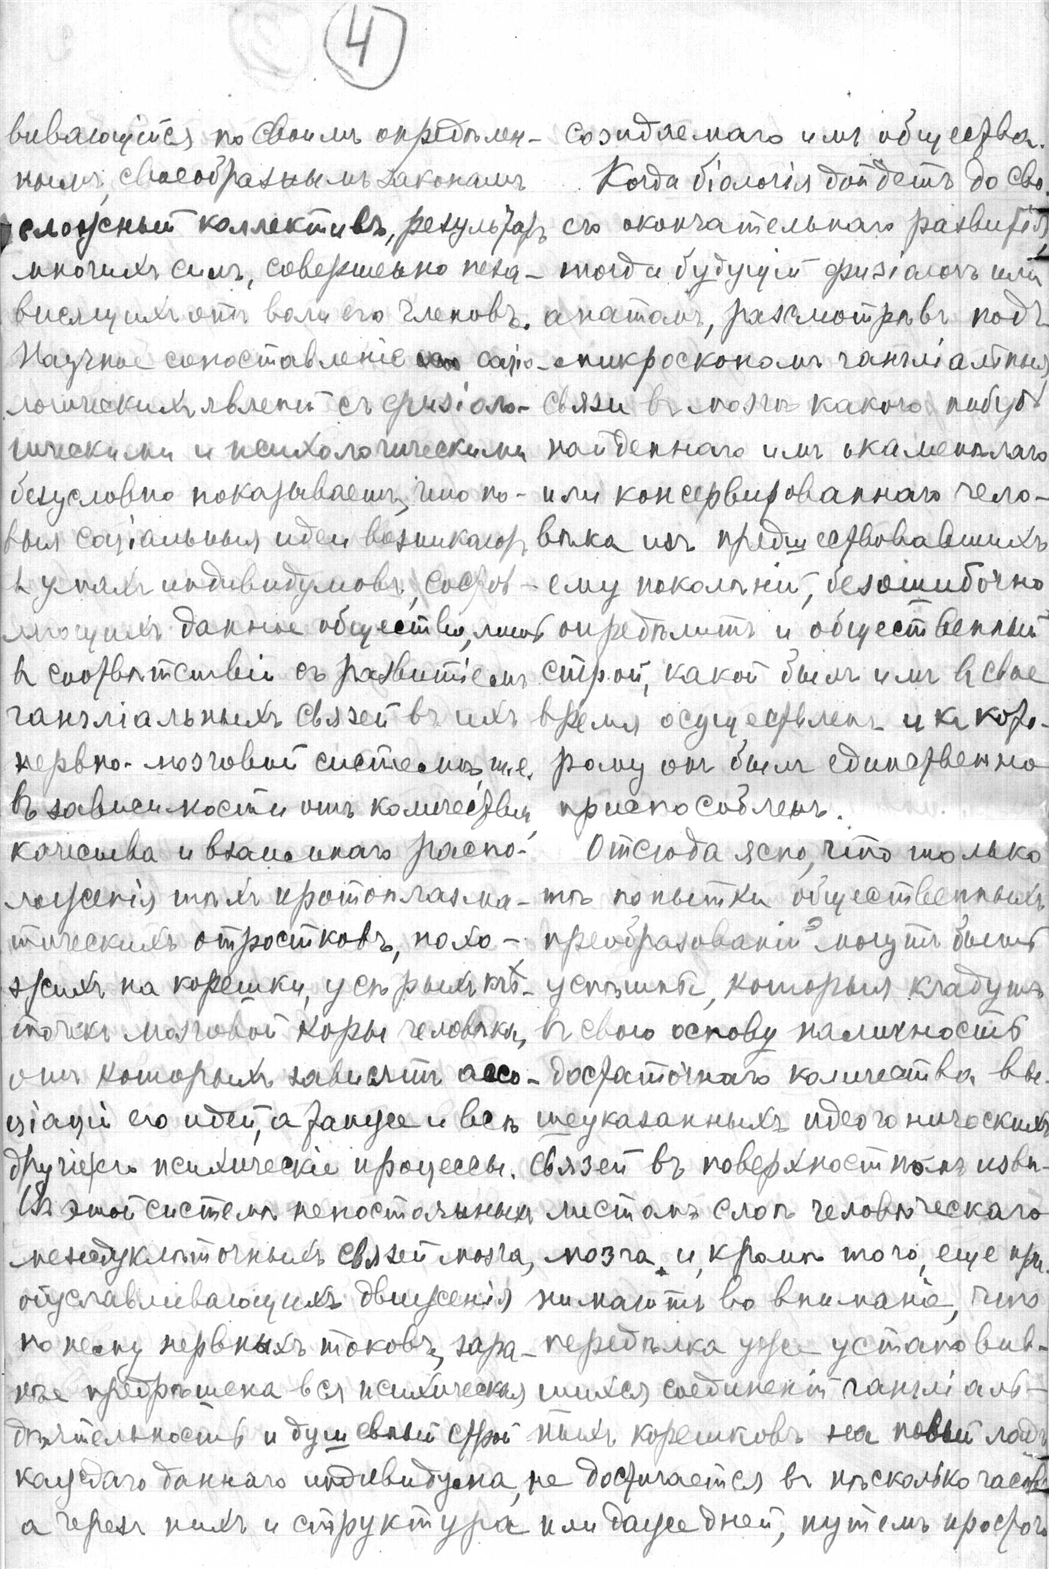 4
вивающiйся по своимъ определен-
нымъ, своеобразнымъ законамъ
сложный коллективъ, результатъ
многихъ силъ, совершенно неза-
висящихъ отъ воли его членовъ.
Научное сопоставленiе соцiо-
логическихъ явленiй съ физiоло-
гическими и психологическими
безусловно показываетъ, что но-
выя соцiальныя идеи возникаютъ
въ умахъ индивидумовъ, состав-
ляющихъ данное общество, лишь
въ соотвѣтствiи съ развитiемъ
ганглiальныхъ связей въ ихъ
нервно-мозговой системѣ, т.е.
въ зависимости отъ количества,
качества и взаимнаго распо-
ложенiя тѣхъ протоплазма-
тическихъ отростковъ, похо-
жихъ на корешки, у сѣрыхъ клѣ-
точекъ мозговой коры человѣка,
отъ которыхъ зависятъ ассо-
цiацiи его идей, а также и всѣ
другiе его психическiе процессы.
Въ этой системѣ непостоянныхъ
междуклѣточныхъ связей мозга,
обуславливающихъ движенiя
по нему нервныхъ токовъ, зара-
нѣе предрѣшена вся психическая
дѣятельность и душевный строй
каждаго даннаго индивидума,
а черезъ нихъ и структура
созидаемаго имъ общества.
Когда бiологiя дойдетъ до сво-
его окончательнаго развитiя,
тогда будущiй физiологъ или
анатомъ, разсмотрѣвъ подъ
микроскопомъ ганглiальныя
связи въ мозгѣ какого нибудь
найденнаго имъ окаменѣлаго
или консервированнаго чело-
вѣка изъ предшествовавшихъ
ему поколѣнiй, безошибочно
опредѣлитъ и общественный
строй, какой былъ имъ въ свое
время осуществленъ и къ кото-
рому онъ былъ единственно
приспособленъ.
Отсюда ясно, что только
тѣ попытки общественныхъ
преобразованiй могутъ быть
успѣшны, которыя кладутъ
въ свою основу наличность
достаточнаго количества вы-
шеуказанныхъ идеогоническихъ
связей въ поверхностномъ изви-
листомъ слоѣ человѣческаго
мозга и, кромѣ того, еще при-
нимаютъ во вниманiе, что
передѣлка уже установив-
шихся соединенiй ганглiаль-
ныхъ корешковъ на новый ладъ
не достигается въ нѣсколько часовъ
или даже дней, путемъ простого